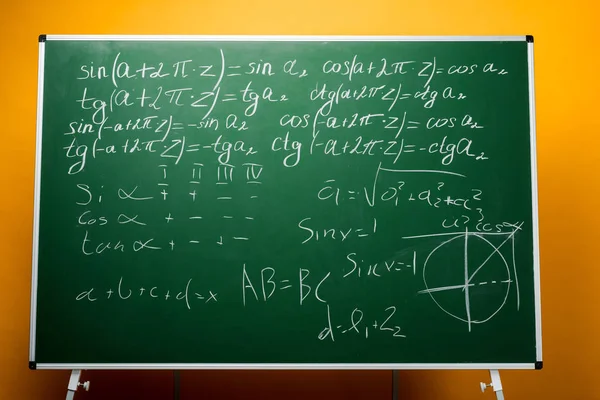 sin(a+2π·z)=sin a₂ cos(a+2π·z)=cos a₂
tg(a+2π·z)=tga₂ ctg(a+2π·z)=ctga₂
sin(-a+2π·z)=-sin a₂ cos(-a+2π·z)=cos a₂
tg(-a+2π·z)=-tga₂ ctg(-a+2π·z)=-ctga₂
I II III IV
Si α + + - -
cos α + - -
tan α + - + -
ā=√a₁²+a₂²+a₃²
Sinx=1
cos x
Sinx=-1
a+b+c+d=x
AB=BC
d=l₁+Z₂